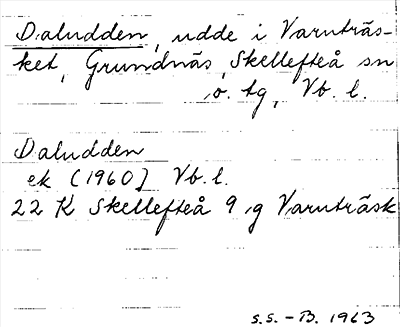 Daludden, udde i Varuträs-
ket, Grundnäs, Skellefteå sn
o. tg, Vb. l.
Daludden
ek (1960) Vb. l.
22 K Skellefteå 9 g Varuträsk
S.S. - B. 1963